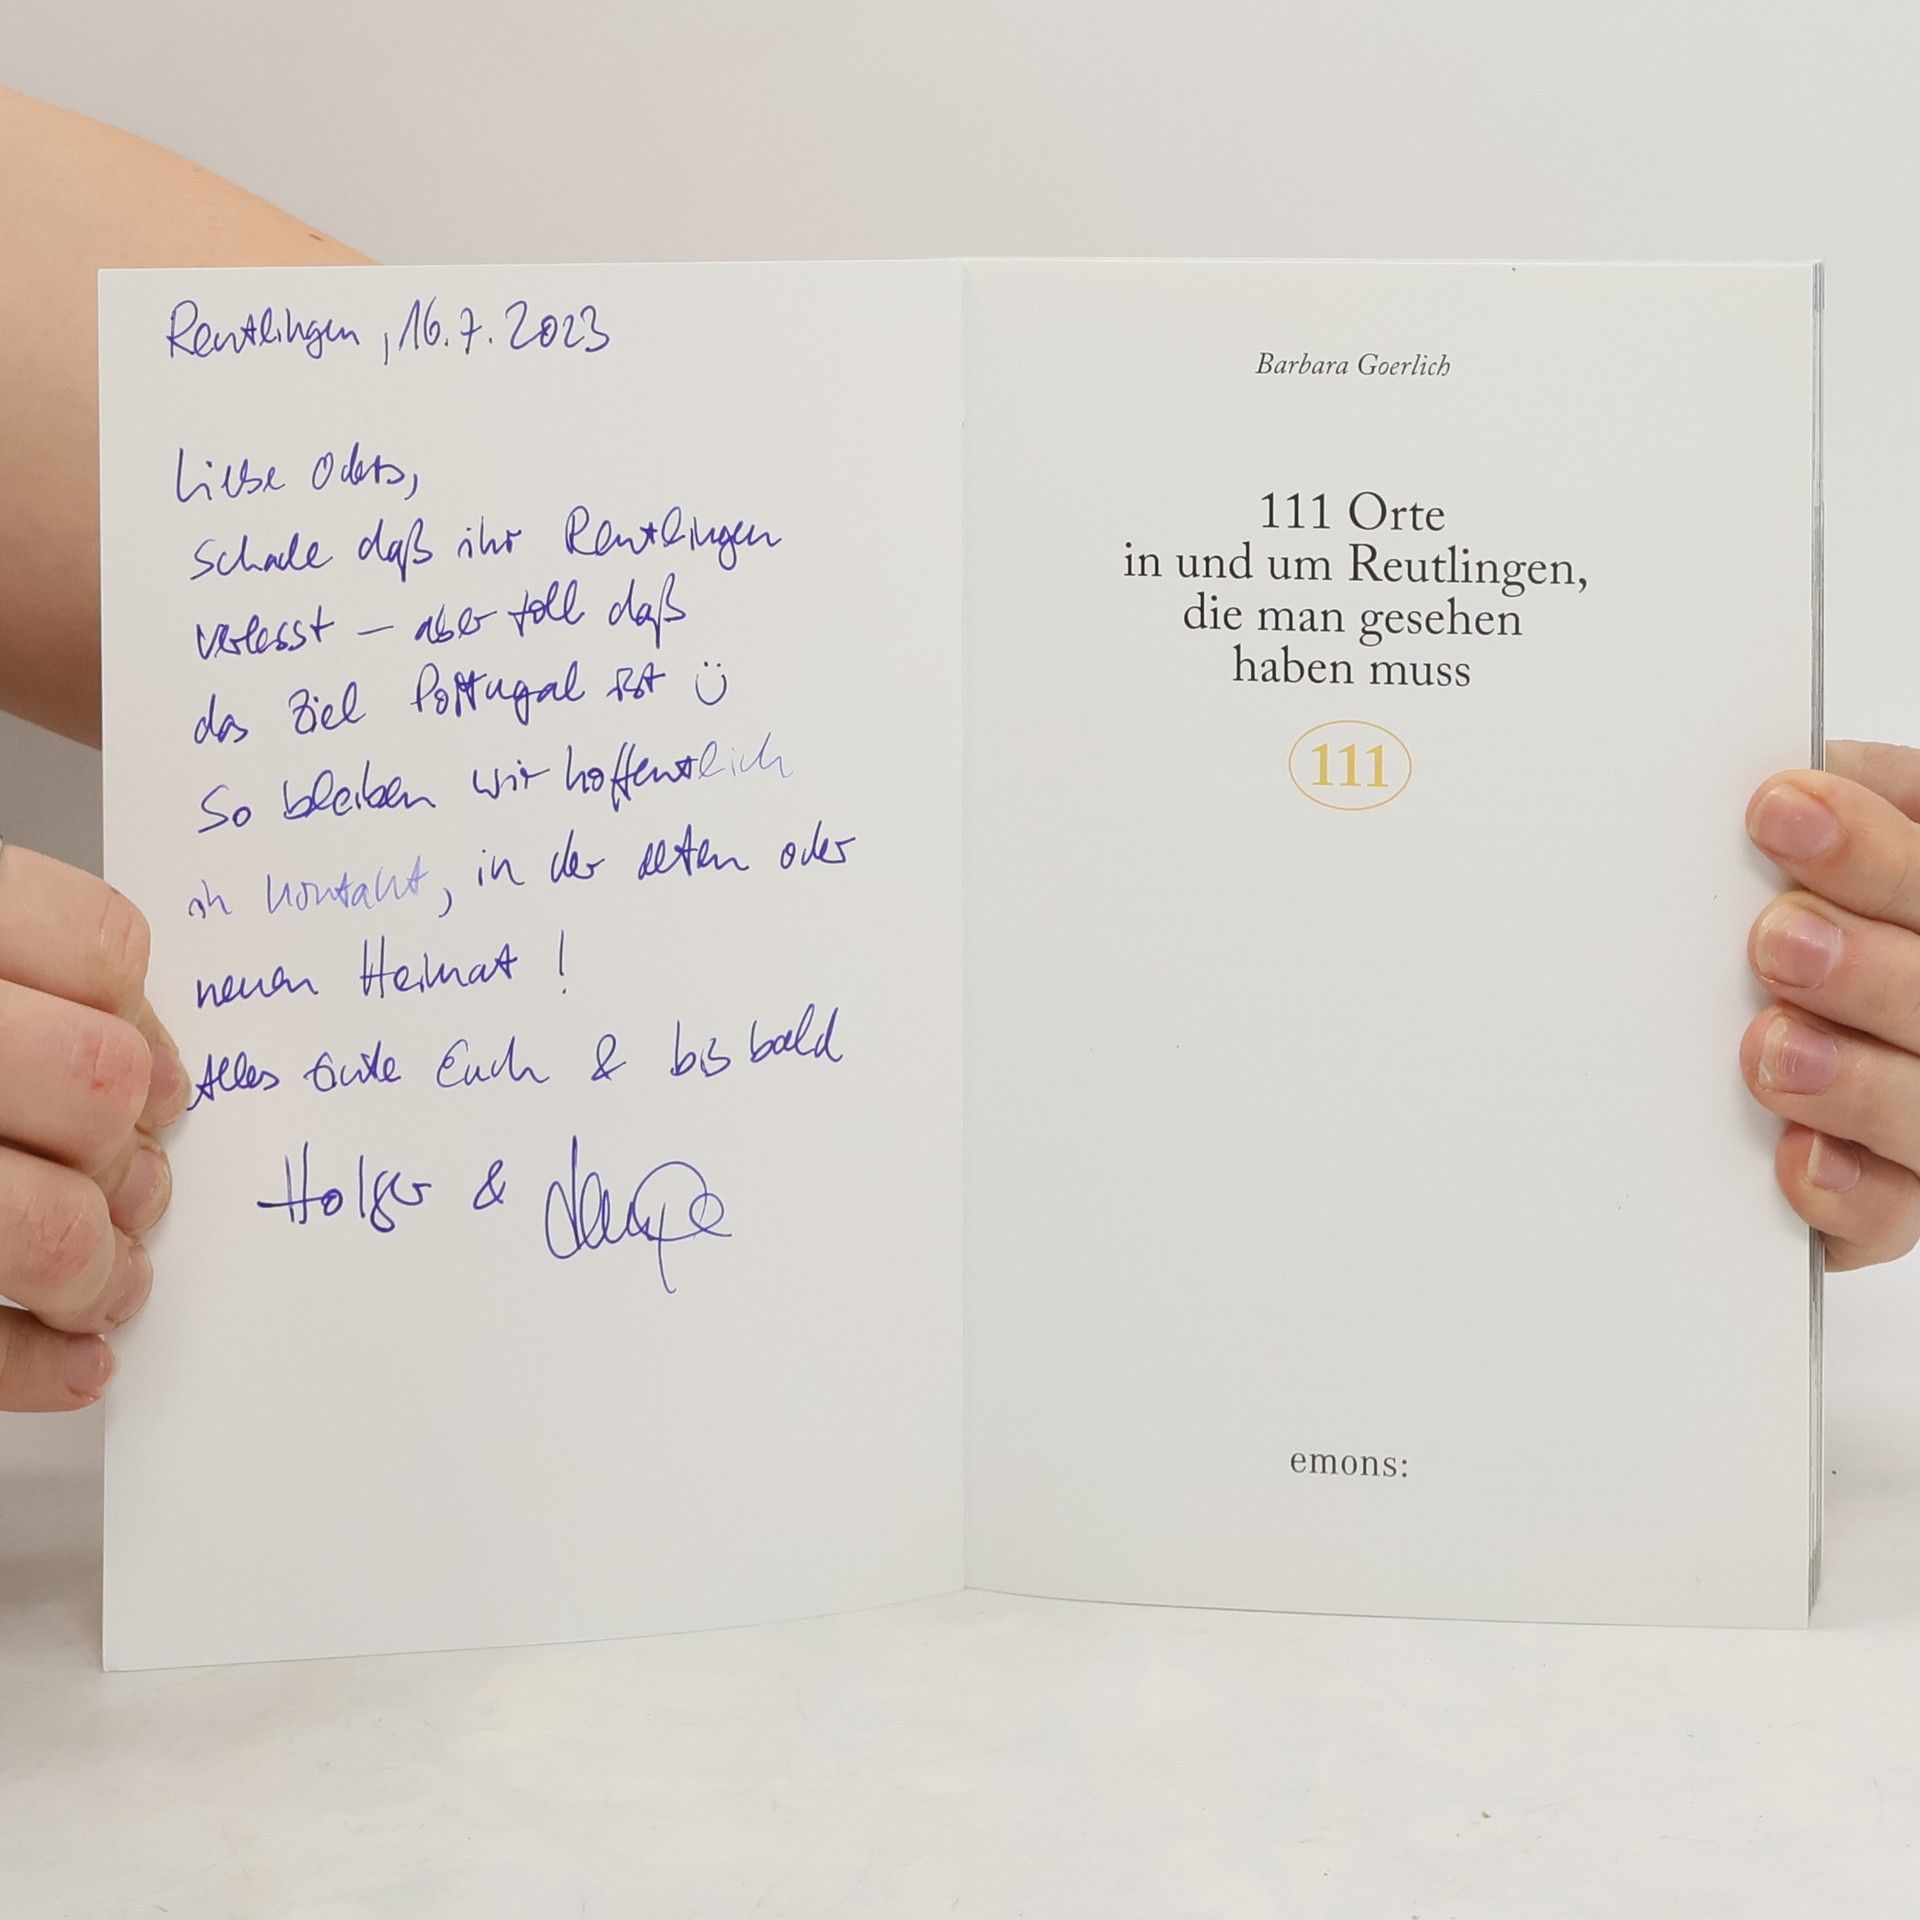 Reutlingen, 16.7.2023
Liebe
schade daß ihr Reutlingen
verlasst – aber toll daß
das Ziel Portugal ist ü
So bleiben wir hoffentlich
in Kontakt, in der alten oder
neuen Heimat !
Alles Gute Euch & bis bald
Holger &
Barbara Goerlich
111 Orte
in und um Reutlingen,
die man gesehen
haben muss
111
emons: